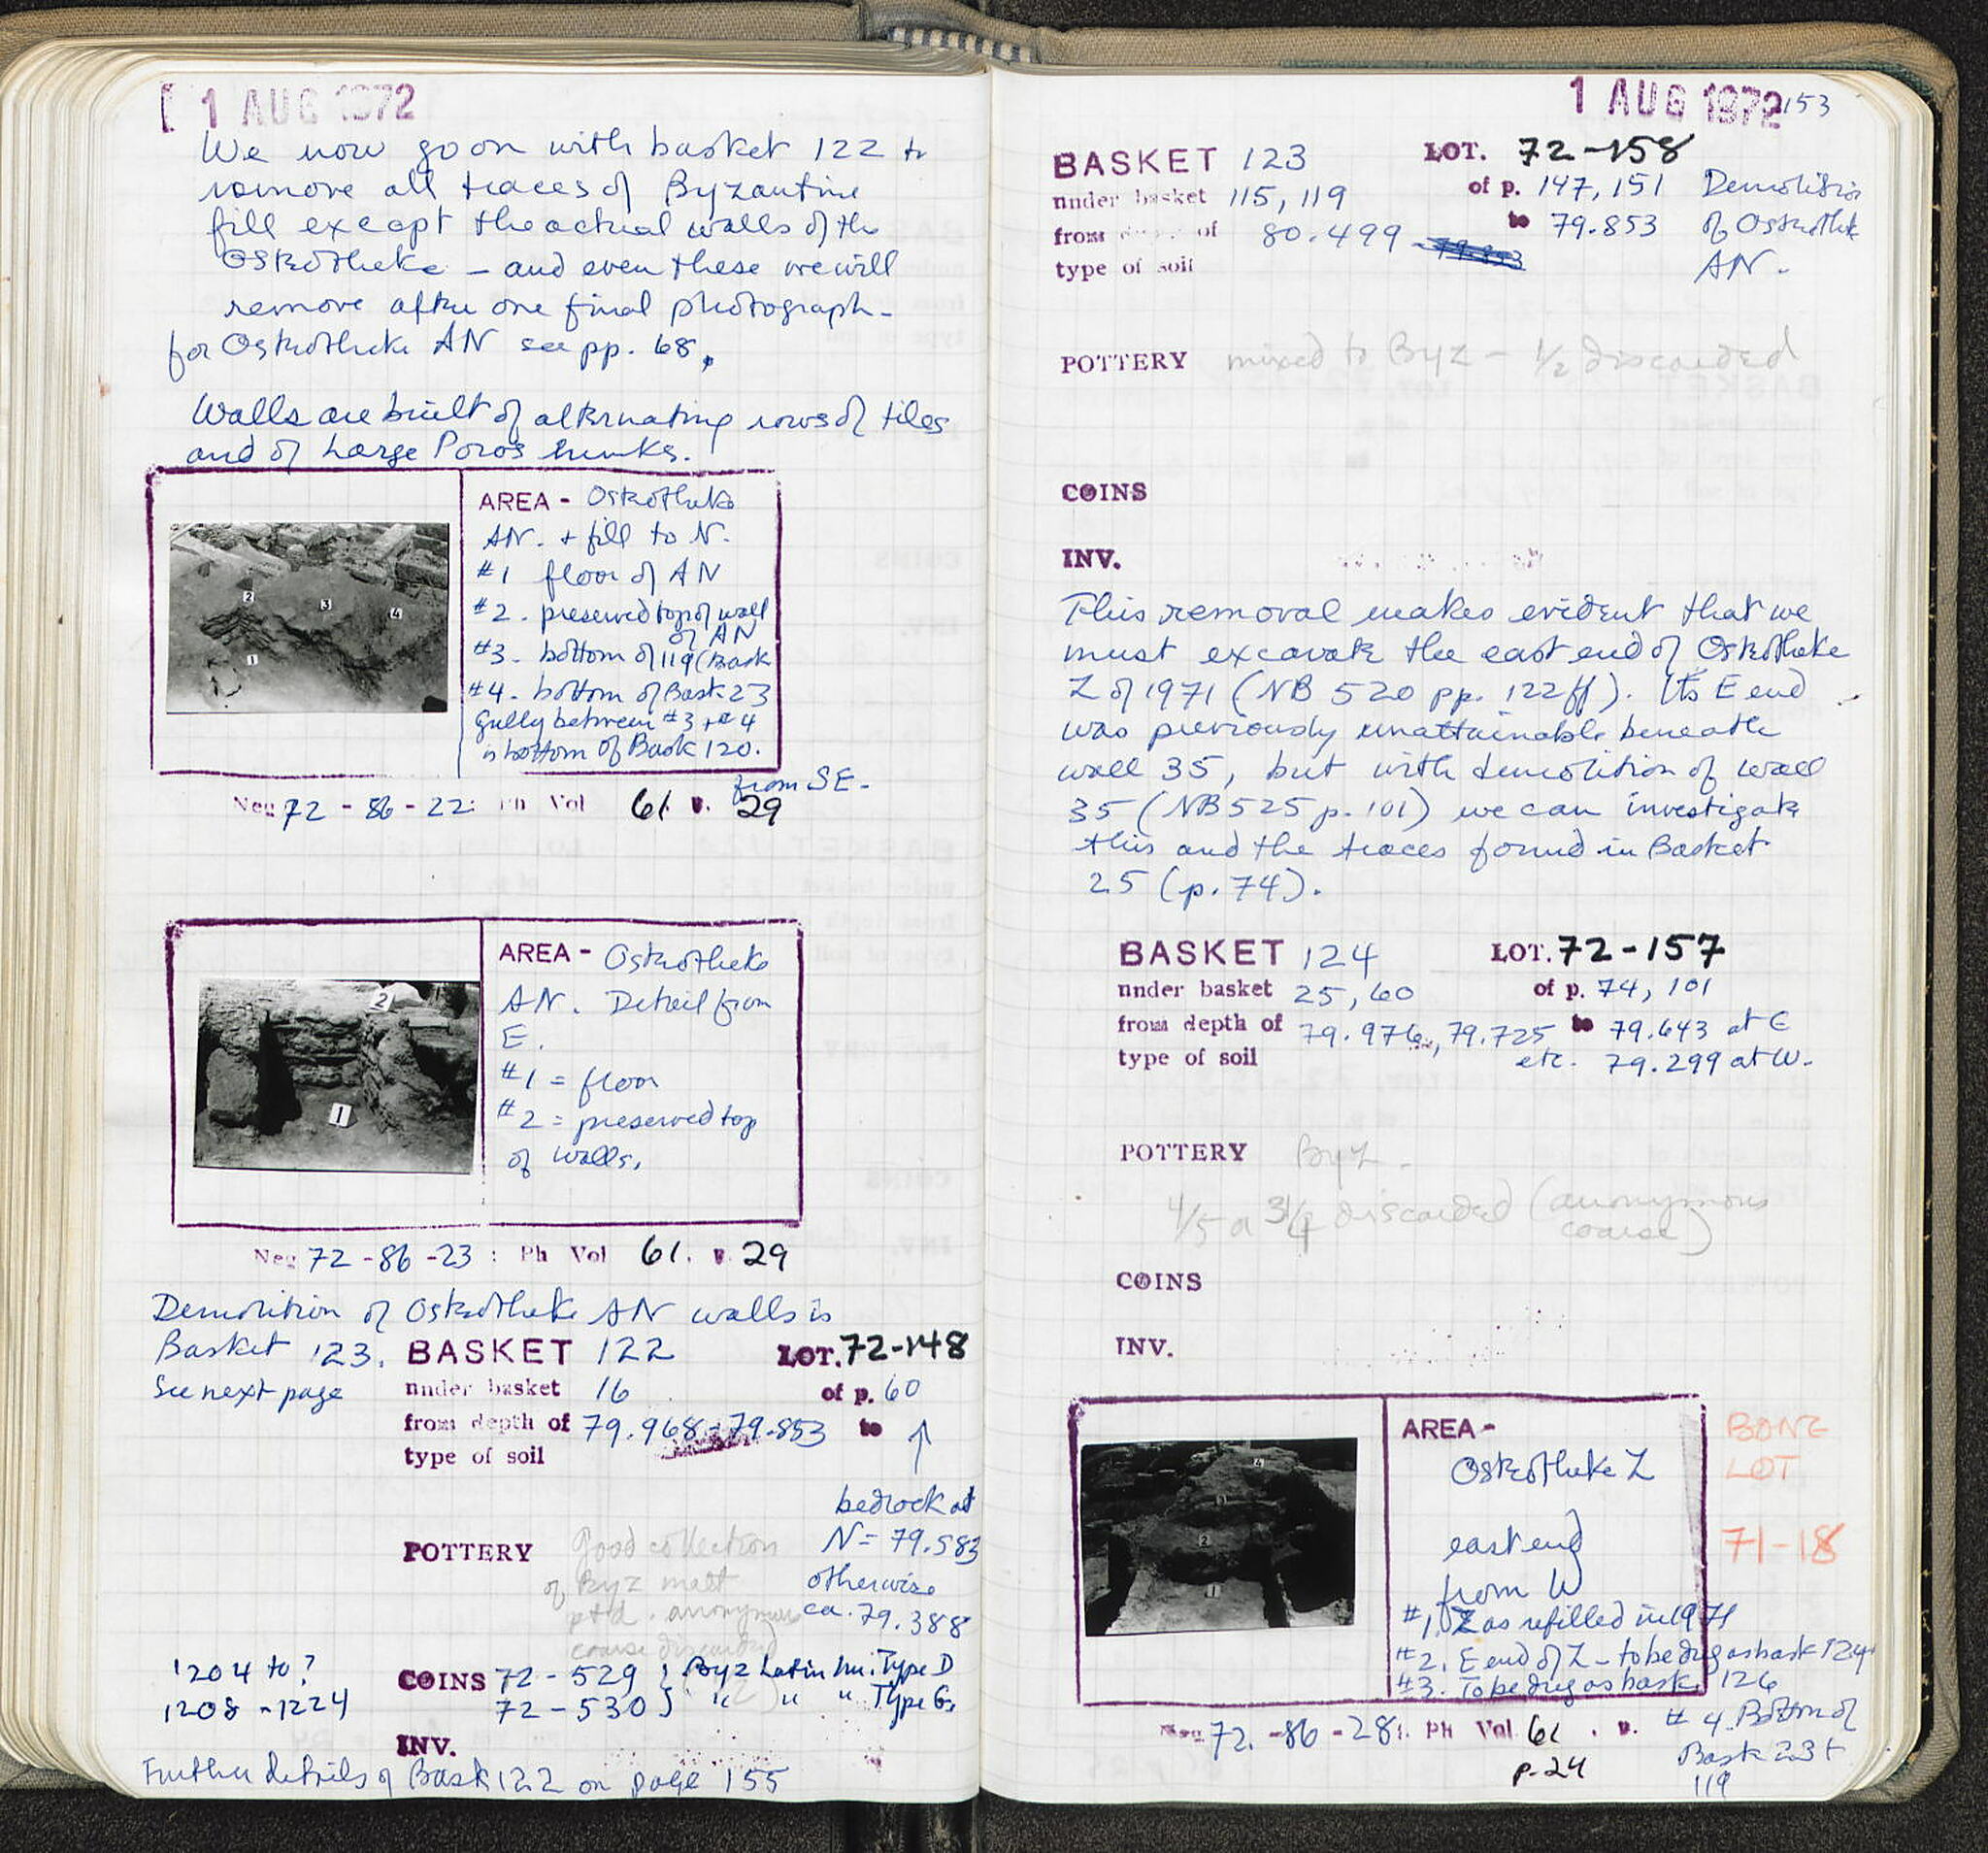 1 AUG 1972
We now go on with basket 122 to
remove all traces of Byzantine
fill except the actual walls of the
Osteotheke — and even these we will
remove after one final photograph -
for Osteotheke AN see pp. 68.
Walls are built of alternating rows of tiles
and of Large Poros hunks.
AREA - Osteotheke
AN. + fill to N.
#1 floor of AN
#2. preserved top of wall
of AN
#3. bottom of 119 (Bask
#4. bottom of Bask 23
Gully between #3 + #4
is bottom of Bask 120.
from SE.
Neg 72 - 86 - 22: Ph Vol 61 p. 29
2
3
4
1
AREA - Osteotheke
AN. Detail from
E.
#1 = floor
#2 = preserved top
of walls.
2
1
Neg 72 - 86 - 23 : Ph Vol 61. p. 29
Demolition of Osteotheke AN walls is
Basket 123.
See next page
BASKET 122 LOT. 72-148
under basket 16 of p. 60
from depth of 79.968 - 79.853 to ↑
type of soil
bedrock at
N = 79.583
otherwise
ca. 79.388
POTTERY Good collection
of Byz matt
ptd. anonymous
coarse discarded
1204 to ?
1208 - 1224
COINS 72 - 529 } (Byz Latin Im. Type D
72 - 530 } " " " Type G.
INV.
Further details of Bask 122 on page 155
1 AUG 1972 153
BASKET 123 LOT. 72-158
under basket 115, 119 of p. 147, 151
from depth of 80.499 to 79.853
type of soil
Demolition
of Osteotheke
AN -
POTTERY mixed to Byz - 1/2 discarded
COINS
INV.
This removal makes evident that we
must excavate the east end of Osteotheke
Z of 1971 (NB 520 pp. 122ff). Its E end
was previously unattainable beneath
wall 35, but with demolition of wall
35 (NB 525 p. 101) we can investigate
this and the traces found in Basket
25 (p. 74).
BASKET 124 LOT. 72-157
under basket 25, 60 of p. 74, 101
from depth of 79.976, 79.725 to 79.643 at E
type of soil etc. 79.299 at W.
POTTERY Byz -
4/5 a 3/4 discarded (anonymous
coarse)
COINS
INV.
AREA -
Osteotheke Z
east end
from W
#1. Z as refilled in 1971
#2. E end of Z - to be dug as bask 124
#3. To be dug as bask 126
# 4. Bottom of
Bask 23 +
119
4
3
2
1
BONE
LOT
71-18
Neg 72. - 86 - 28: Ph Vol 61 . p.
p. 24